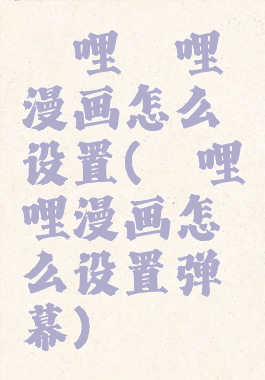 哩 哩
漫画怎么
设置( 哩
哩漫画怎
么设置弹
幕)